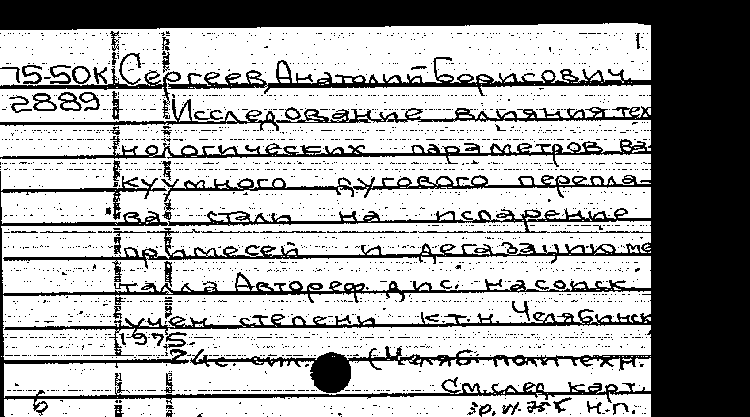 75-50К Сергеев, Анатолий Борисович.
2889 Исследование влияния тех
нологических параметров ва-
куумного дугового перепла-
ва стали на испарение
примесей и дегазацию ме
талла Автореф. дис. на соиск.
учен. степени к.т.н. Челябинск
1975.
24с. (Челяб. политехн.
См. след. карт.
6 Н.П.